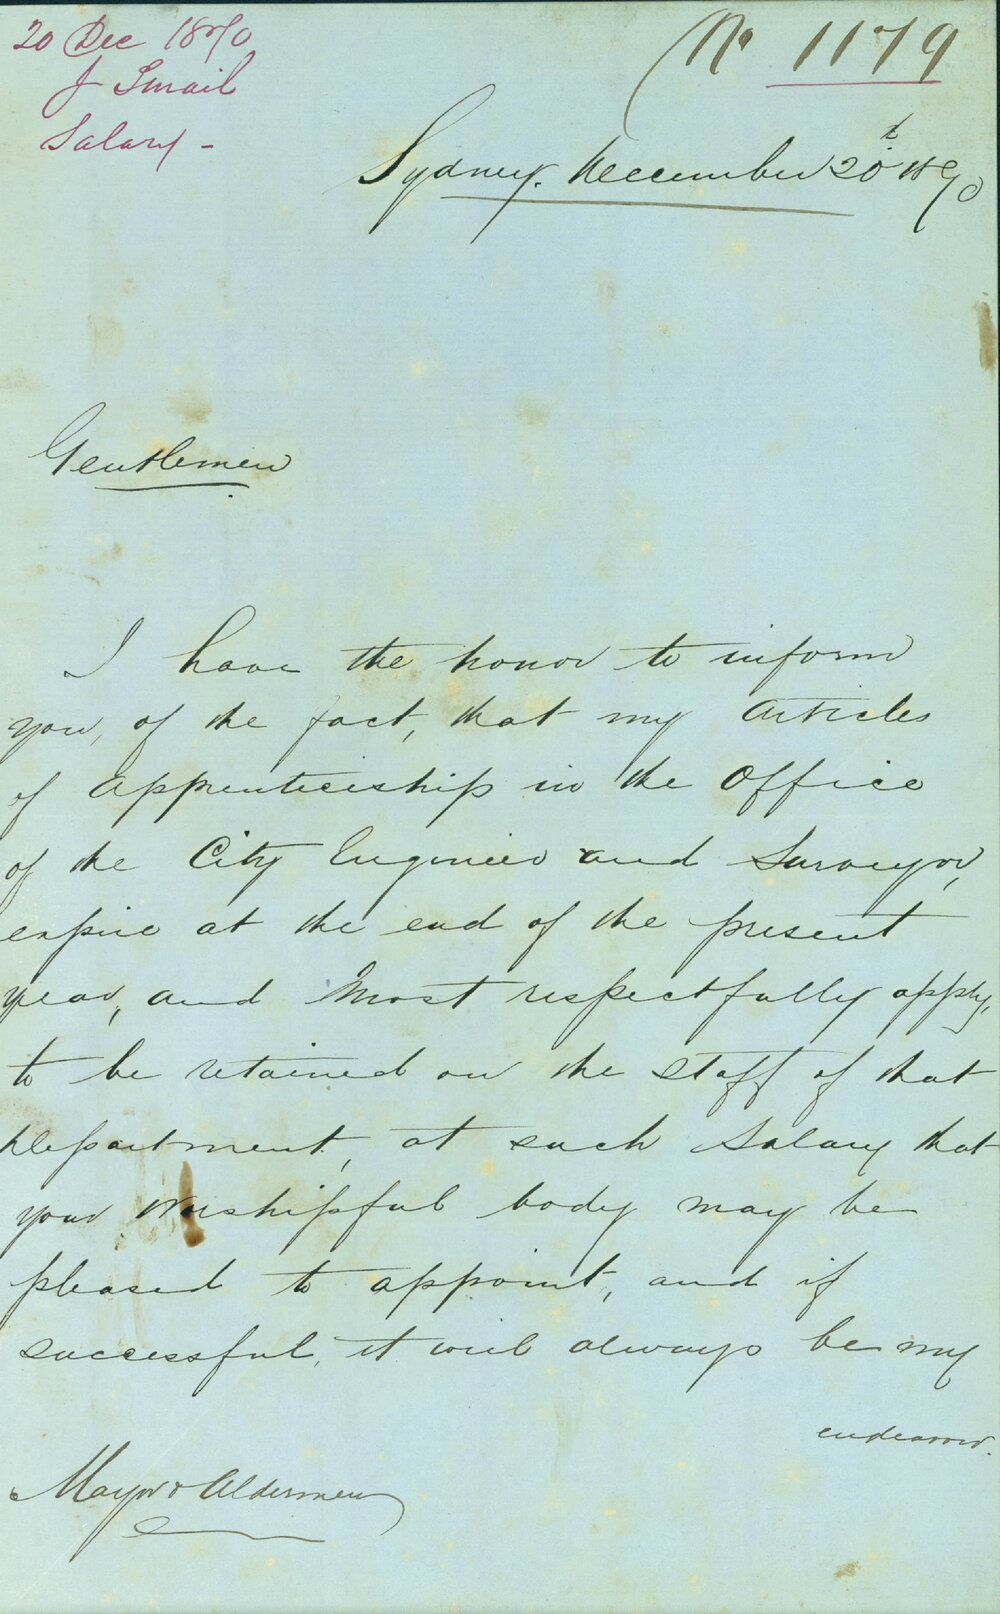 20 Dec 1870
J Smail
Salary -
No 1179
Sydney. December 20th 1870
Gentlemen
I have the honor to inform
you, of the fact, that my Articles
of Apprenticeship in the Office
of the City Engineer and Surveyor,
expire at the end of the present
year, and Most respectfully apply,
to be retained on the staff of that
Department, at such Salary that
your Worshipful body may be
pleased to appoint, and if
successful, it will always be my
endeavor.
Mayor & Aldermen